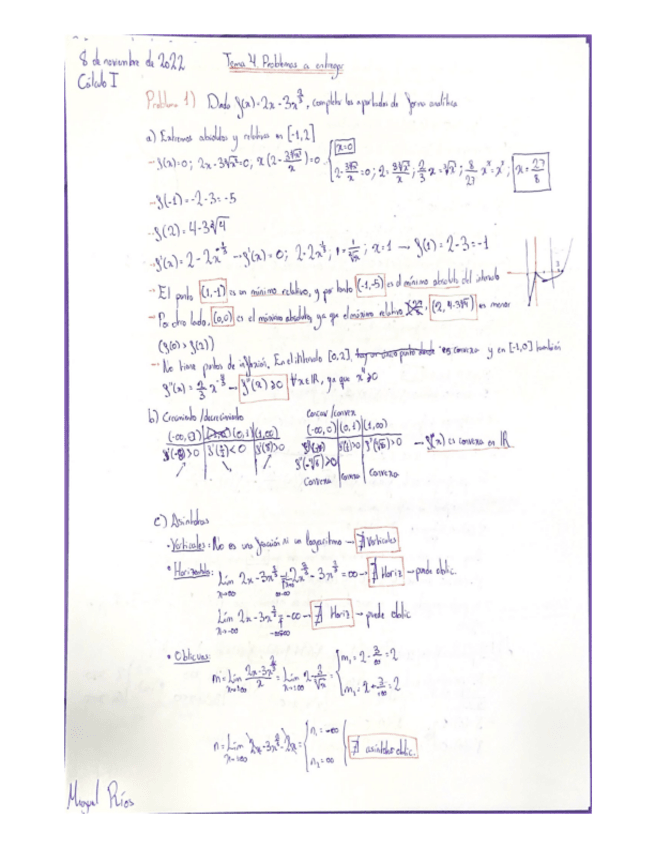 8 de noviembre de 2022
Tema 4 Problemas a entregar
Cálculo I
Problema 1) Dado f(x)=2x-3x^{2/3}, completa los apartados de forma analítica
a) Extremos absolutos y relativos en [-1,2]
- f(x)=0; 2x-3∛x²=0; x(2-3∛x²/x)=0 { x=0
2-3∛x²/x=0; 2=3∛x²/x; 2/3 x=∛x²; 8/27 x³=x²; x=27/8
- f(-1)=-2-3=-5
- f(2)=4-3∛4
- f'(x)=2-2x^{-1/3} → f'(x)=0; 2=2x^{-1/3}; 1=1/∛x; x=1 → f(1)=2-3=-1
- El punto (1,-1) es un mínimo relativo, y por tanto (-1,-5) es el mínimo absoluto del intervalo
- Por otro lado, (0,0) es el máximo absoluto, ya que el máximo relativo (2, 4-3∛4) es menor
(f(0)>f(2))
- No tiene puntos de inflexión. En el intervalo [0,2], es convexa y en [-1,0] también
f''(x)=2/3 x^{-4/3} → f''(x)≥0 ∀x∈ℝ, ya que x⁴≥0
b) Crecimiento/decrecimiento
Concav/convex
(0,1) (1,∞)
(-∞,0) (0,1) (1,∞)
→ f(x) es convexa en ℝ
Convexa convexa convexa
c) Asíntotas
• Verticales: No es una fracción ni un logaritmo → ∄ Verticales
• Horizontales: Lim 2x-3x^{2/3} = ∞ → ∄ Horiz → puede oblic.
x→∞
Lim 2x-3x^{2/3} = -∞ → ∄ Horiz → puede oblic
x→-∞
• Oblicuas:
m=Lim (2x-3x^{2/3})/x = Lim 2-3/∛x = { m₁=2-3/∞=2
x→±∞ x→±∞
n=Lim 2x-3x^{2/3}-2x= { n₁=-∞
∄ asíntotas oblic.
x→±∞
Miguel Ríos